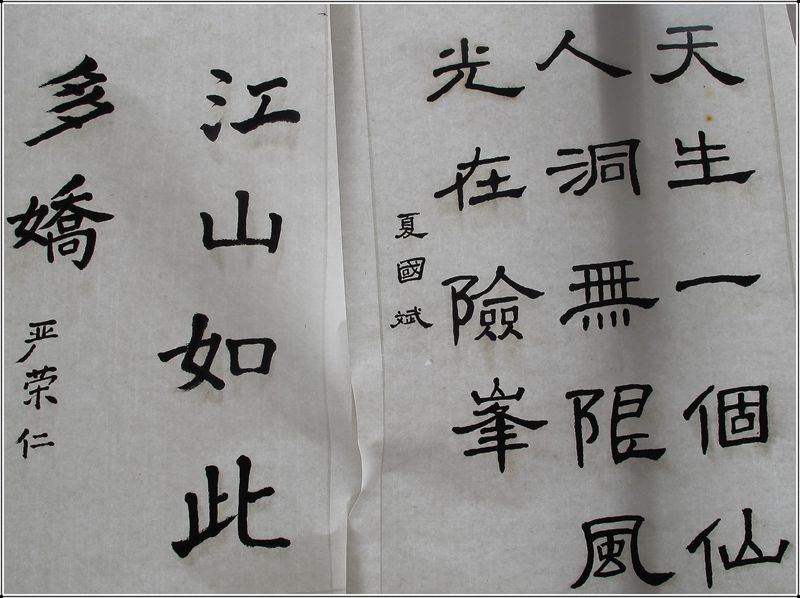 天生一個仙
人洞無限風
光在險峯
夏國斌
江山如此
多嬌
严荣仁